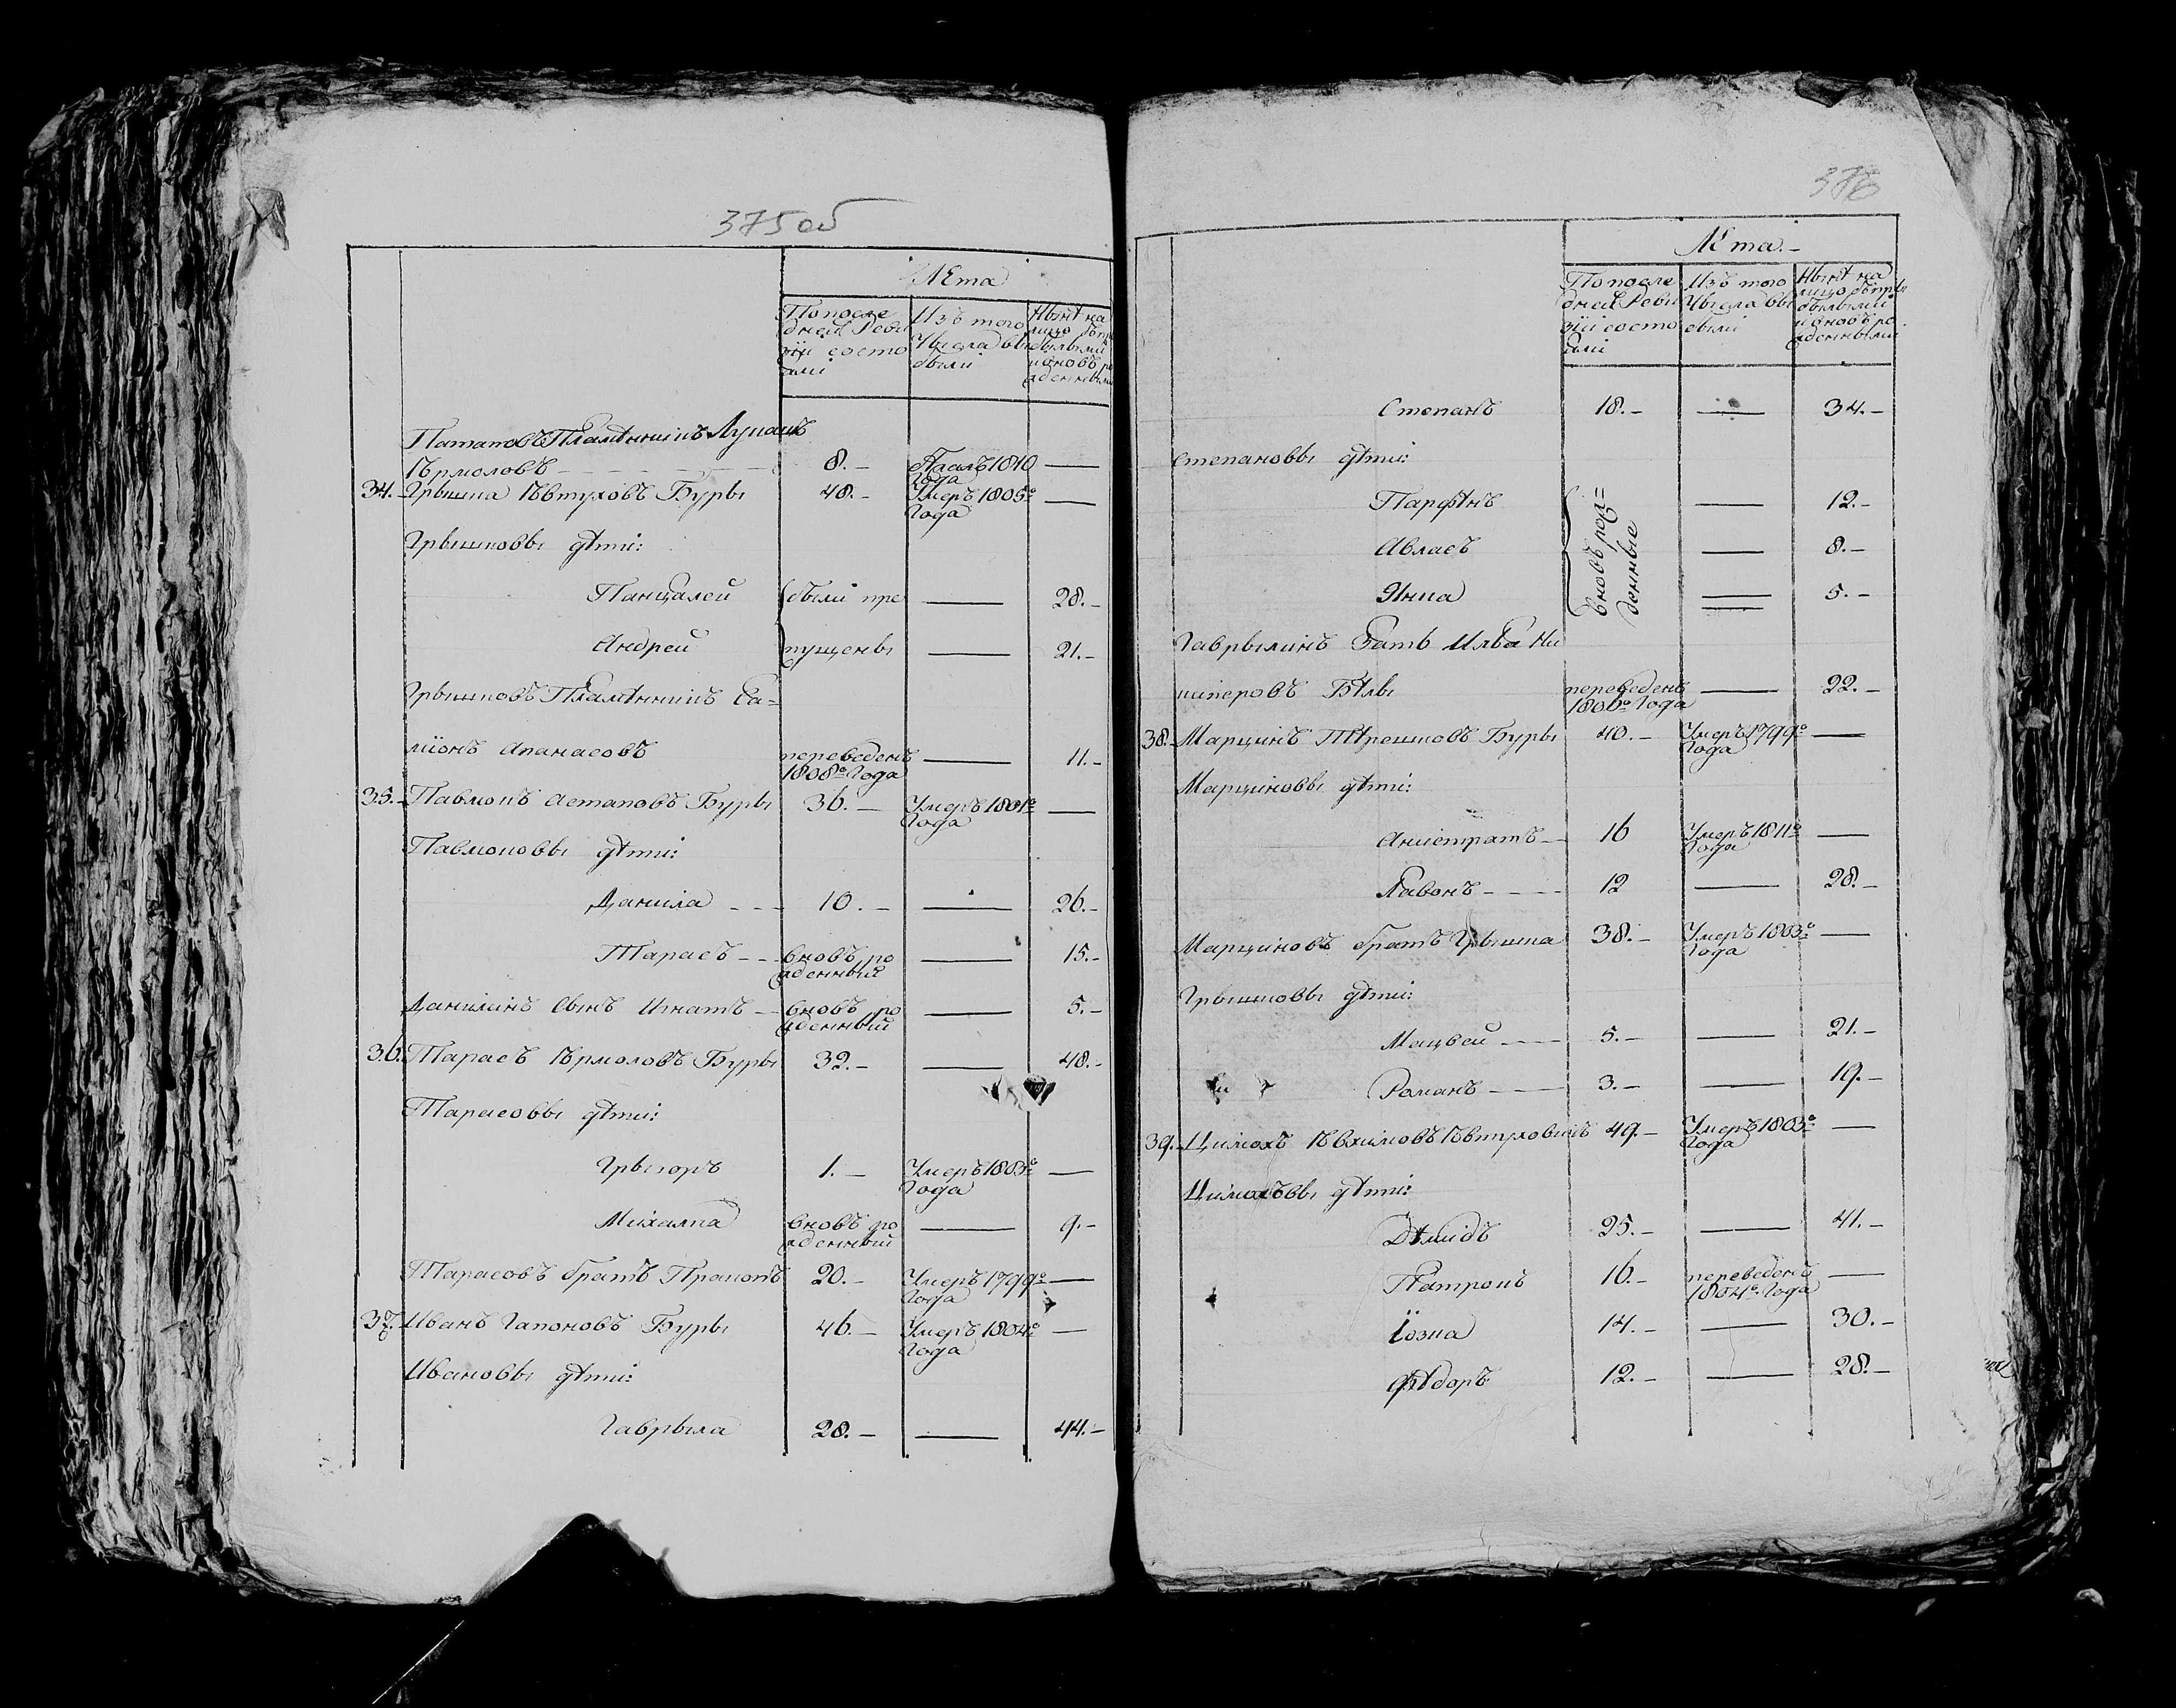 375 об
Лѣта
По последней Ревизіи состояли
Изъ того Числа выбыли
Нынѣ на лицо
Потаповъ Племѣнникъ Лукашъ
Ермоловъ 8. 1810 Года —
34. Грышка Евтуховъ Буры 48. Умеръ 1805го Года —
Грышковы дѣти:
Панцалей были про — 28.
Андрей пущены — 21.
Грышковъ Племѣнникъ Са-
міонъ Апанасовъ переведенъ 1808го Года — 11.
35. Павлюкъ Астаповъ Буры 36. Умеръ 1801го Года —
Павлюковы дѣти:
Данила 10. — 26.
Тарасъ вновь рожденный — 15.
Данилинъ Сынъ Игнатъ вновь рожденный — 5.
36. Тарасъ Ермоловъ Буры 32. — 48.
Тарасовы дѣти:
Грыгоръ 1. Умеръ 1803го Года —
Михалка вновь рожденный — 9.
Тарасовъ братъ Пракопъ 20. Умеръ 1799го Года —
37. Иванъ Гапоновъ Буры 46. Умеръ 1804го Года —
Ивановы дѣти:
Гаврыла 28. — 44.
376
Лѣта.
По последней Ревизіи состояли
Изъ того Числа выбыли
Нынѣ на лицо съ прибылыми и вновь рожденными
Степанъ 18. — 34.
Степановы дѣти:
вновь рожденные
Парфѣнъ — 12.
Авласъ — 8.
Янка — 5.
Гаврылинъ Зать Илья Ни
кипоровъ Бѣлы переведенъ 1806го Года — 22.
38. Марцинъ Пѣтрешковъ Буры 40. Умеръ 1799го Года —
Марциновы дѣти:
Анистратъ 16 Умеръ 1811го Года —
Лавонъ 12 — 28.
Марциновъ братъ Грышка 38. Умеръ 1803го Года —
Грышковы дѣти:
Мацвей 5. — 21.
Романъ 3. — 19.
39. Цимохъ Евхимовъ Евтуховичъ 49. Умеръ 1803го Года —
Цимоховы дѣти:
Дѣмидъ 25. — 41.
Пѣтрокъ 16. переведенъ 1804го Года —
Іозка 14. — 30.
Фѣдоръ 12. — 28.